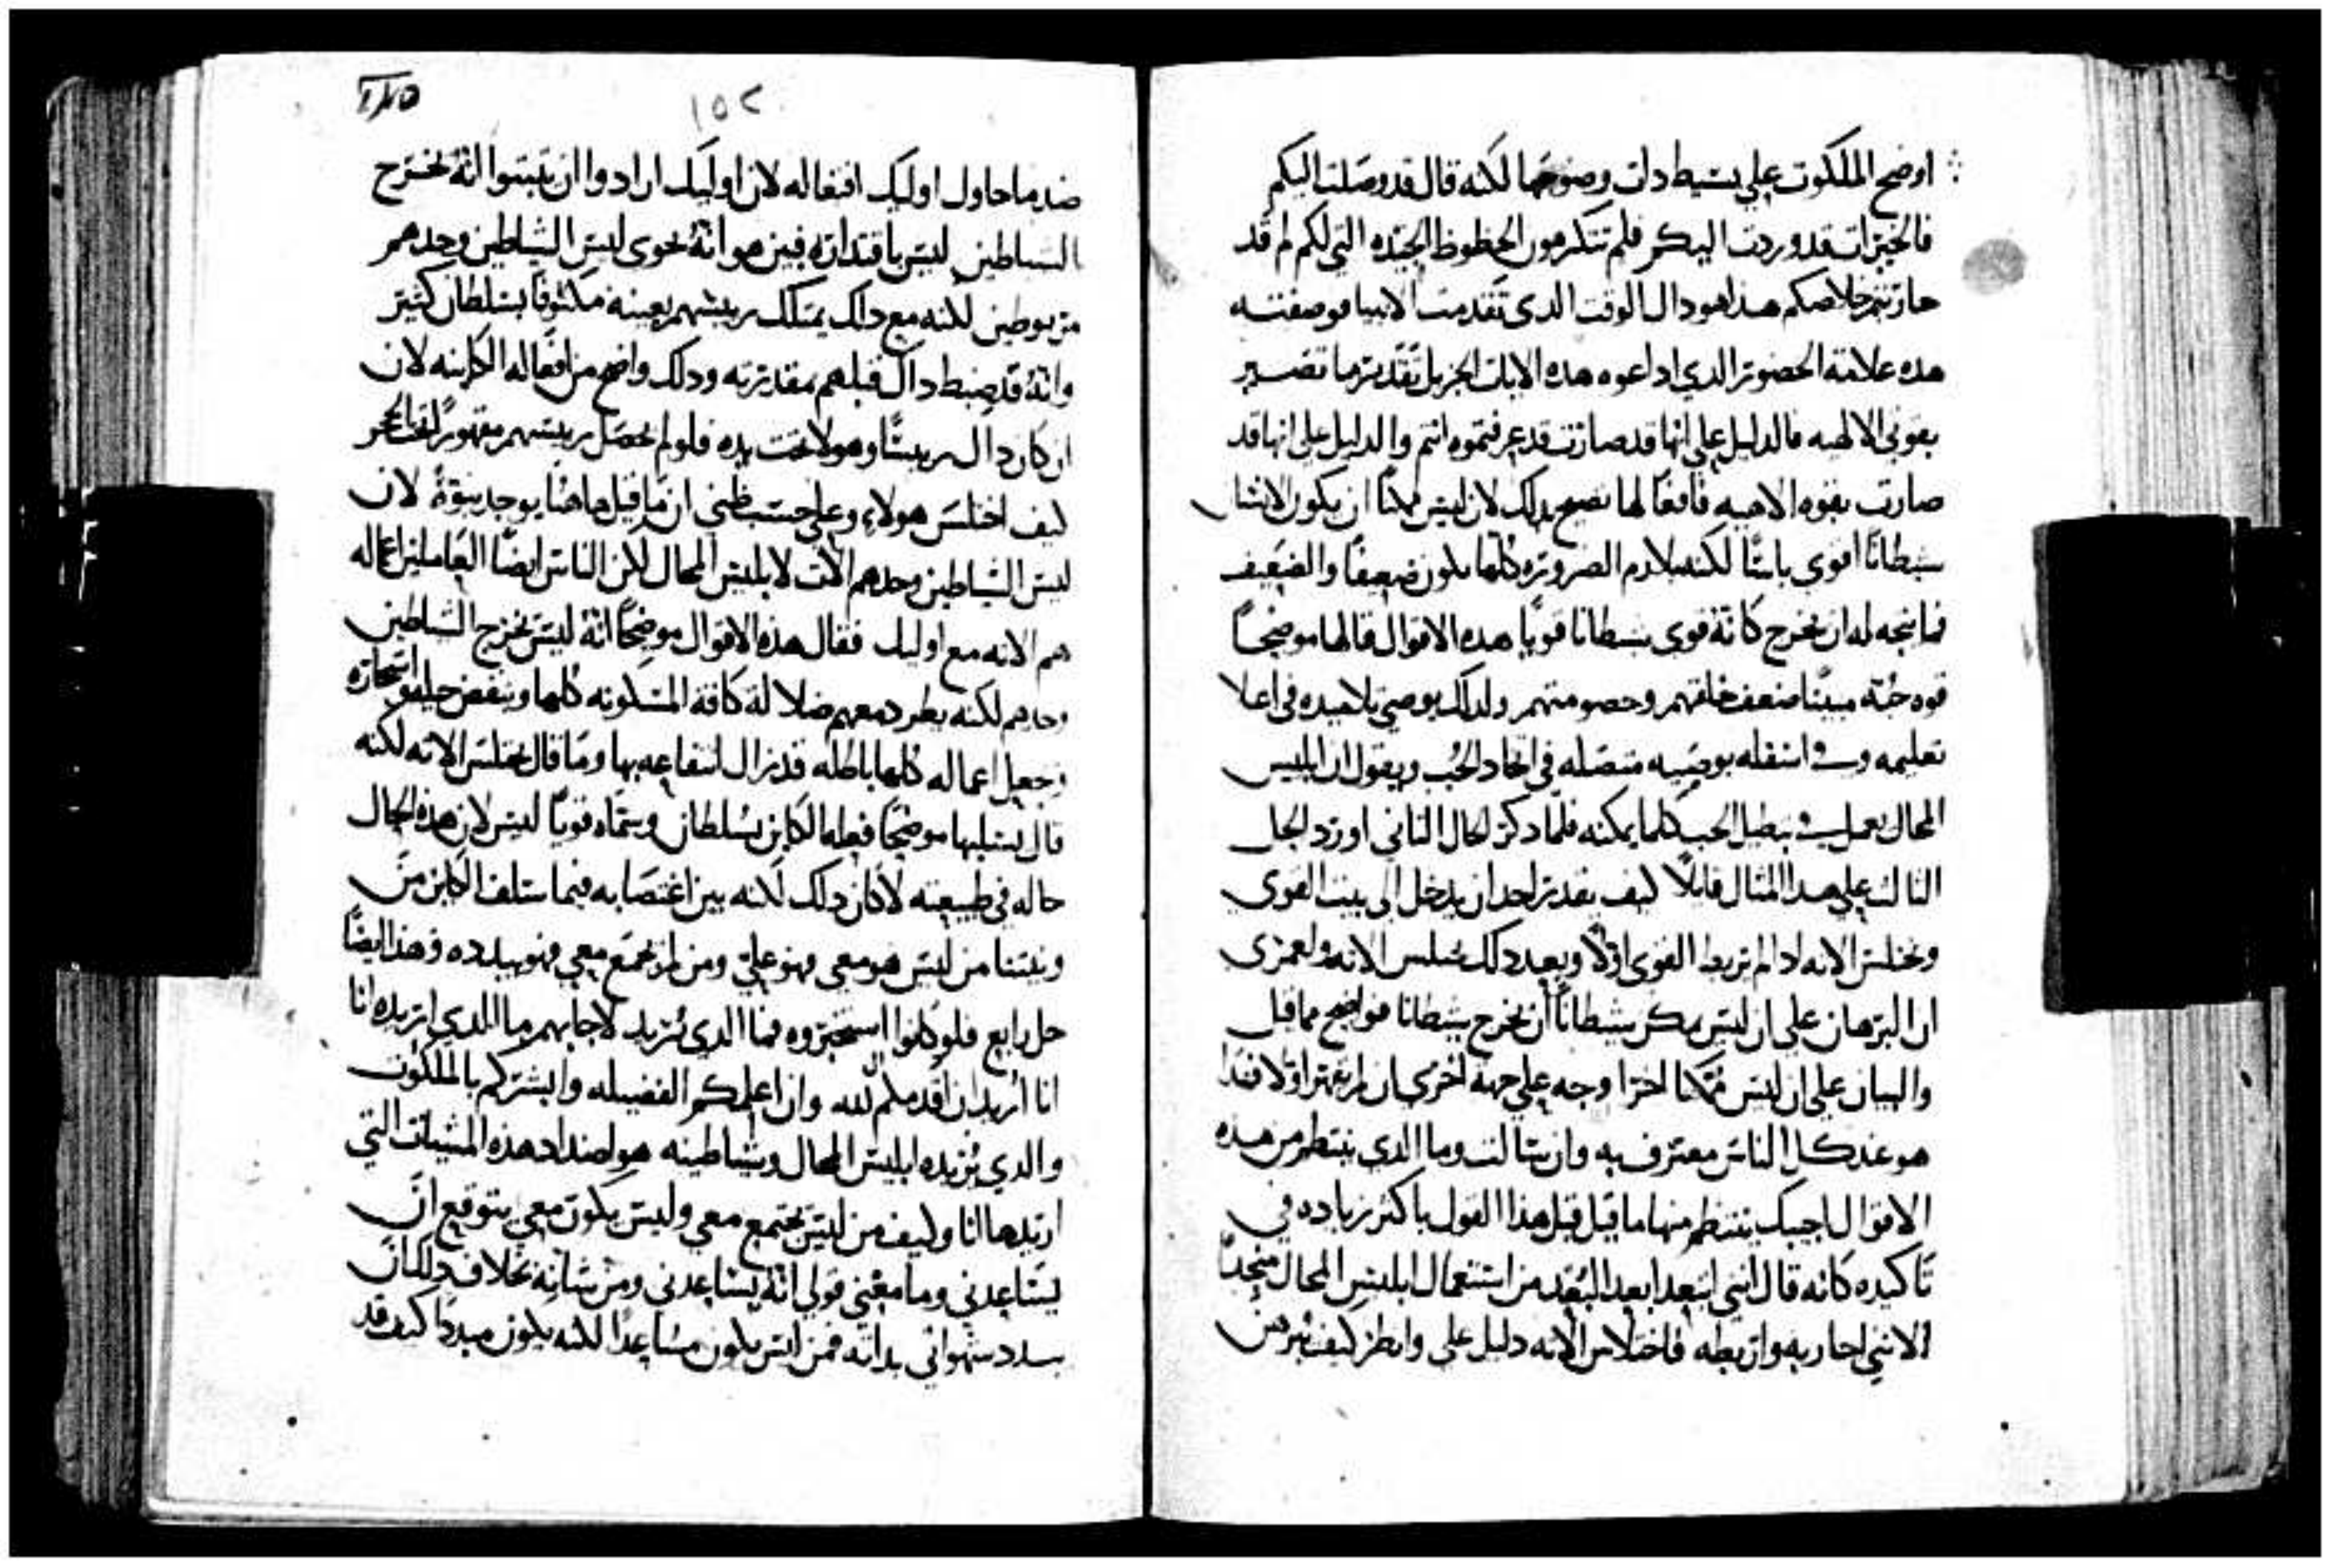 اوضح الملكوت علي بسيط دات وضوحها لكنه قال قد وصلت اليكم
فالخيرات قد وردت اليكم فلم تتكرهون الحظوظ الجيده التي لكم لم قد
حاربتم خلاصكم هذا هو داك الوقت الدي تقدمت الانبيا فوصفته
هده علامة الحضور الدي اداعوه هده الايات الجزيل تقديرها تصير
بقوتي الالهيه فالدليل علي انها قد صارت قد عرفتموه انتم والدليل علي انها قد
صارت بقوه الاهيه فافعالها تصيح بدلك لان ليس ممكنًا ان يكون الانسان
شيطانًا اقوي باسًا لكنه بلازم الضروره كلها يكون ضعيفًا والضعيف
فما يتجه له ان يخرج كانه قوي شيطانا قويًا هده الاقوال قالها موضحًا
قوه حبه مبينًا ضعف خلفهم وخصومتهم ولدلك يوصي تلاميده في اعلا
تعليمه وفي اسفله بوصيه متصله في اتحاد الحب ويقول ان ابليس
المحال يعمل في تبطيل الحب كلما يمكنه فلما دكر الحال الثاني اورد الحل
الثالث علي هدا المثال قايلًا كيف يقدر احد ان يدخل الي بيت القوي
ويختلس الانه اد لم يربط القوي اولًا وبعد دلك يختلس الانه ولعمري
ان البرهان علي ان ليس يمكن شيطانًا ان يخرج شيطانا فواضح مما قيل
والبيان علي ان ليس ممكنا اخراجه علي جهة اخري ان لم يقهر اولا فهدا
هو عند كل الناس معترف به وان سالت وما الدي ينتظم من هده
الاقوال اجيبك ينتظم منها ما قيل قبل هذا القول باكثر زياده في
تاكيده كانه قال انني ابتعد ابعد البعد من استعمال ابليس المحال منجدًا
لانني احاربه واربطه فاختلاس الانه دليل علي وانظر كيف يبرهن
١٥٢
ضد ما حاول اوليك افتعاله لان اوليك ارادوا ان يثبتوا انه يخرج
الشياطين ليس باقتداره فبين هو انه يحوي ليس الشياطين وحدهم
مربوطين لكنه مع دلك يمتلك رييسهم بعينه مكتوفًا بسلطان كثير
وانه قد ضبط داك قبلهم بمقدرته ودلك واضح من افعاله الكاينه لان
ان كان داك رييسًا وهولا تحت يده فلو لم يحصل رييسهم مقهورًا
كيف اختلس هولاء وعلي حسب ظني ان ما قيل هاهنا يوجد نبوةً لان
ليس الشياطين وحدهم الات لابليس المحال لكن الناس ايضًا العاملين اعماله
هم الانه مع اوليك فقال هذه الاقوال موضحًا انه ليس يخرج الشياطين
وحدهم لكنه يطرد معهم ضلالة كافة المسكونه كلها وينقض حيله واسحاره
وجعل اعماله كلها باطله قد زال انتفاعه بها وما قال يختلس الانه لكنه
قال يستلبها موضحًا فعله الكاين بسلطان وسماه قويًا ليس لان هذه الحال
حاله في طبيعته لا كان دلك لكنه بين اغتصابه فيما سلف الكاين من
ونيتنا من ليس هو معي فهو علي ومن لم يجمع معي فهو يبدده فهذا ايضًا
حل رابع فلو كانوا استخبروه فما الدي تريد لاجابهم ما الدي اريده انا
انا اريد ان اقدمكم لله وان اعلمكم الفضيله وابشركم بالملكوت
والدي يريده ابليس المحال وشياطينه هو اضداد هذه المشيات التي
اريدها انا وكيف من ليس يجتمع معي وليس يكون معي يتوقع ان
يساعدني وما معني قولي انه يساعدني ومن شانه بخلاف دلك ان
يبدد شهواتي بداته فمن ليس يكون مساعدًا لكنه يكون مبددًا كيف قد